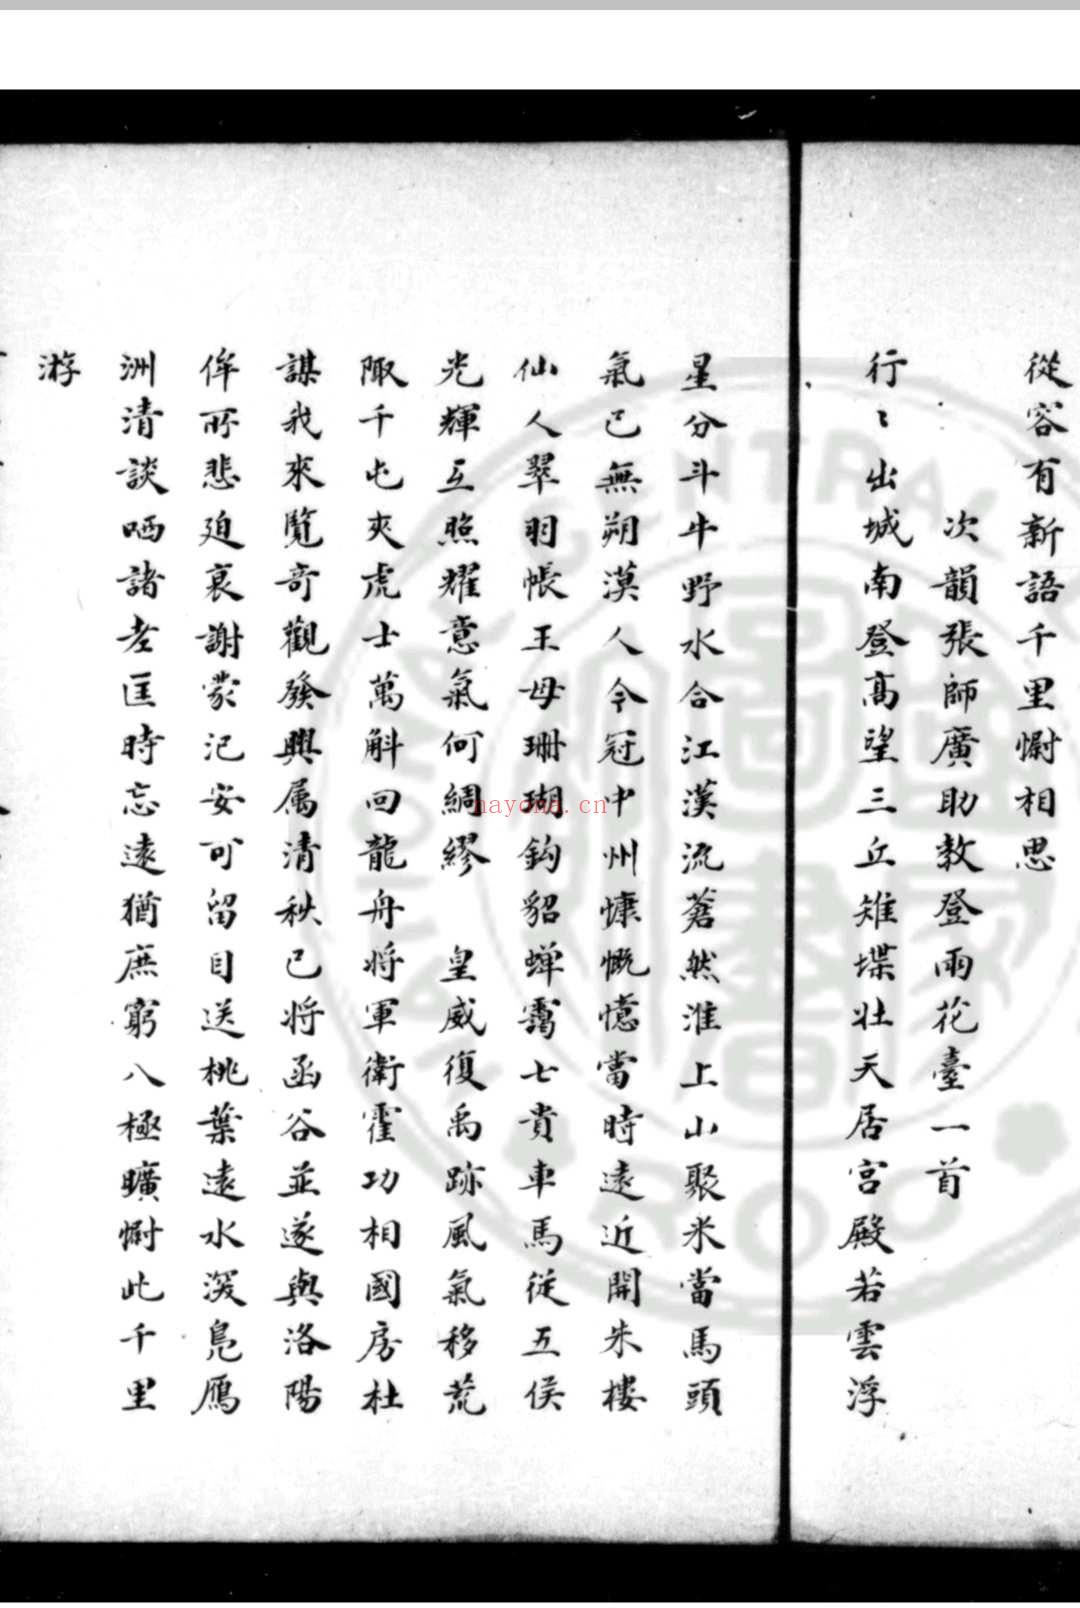 從容有新語千里慰相思
次韻張師廣助教登雨花臺一首
行〻出城南登高望三丘雉堞壯天居宮殿若雲浮
星分斗牛野水合江漢流蒼然淮上山聚米當馬頭
氣已無朔漠人今冠中州慷慨憶當時遠近開朱樓
仙人翠羽帳王母珊瑚鈎貂蟬靄七貴車馬從五侯
光輝互照耀意氣何綢繆　皇威復禹跡風氣移荒
陬千屯夾虎士萬斛回龍舟將軍衛霍功相國房杜
謀我來覽奇觀發興属清秋已將函谷並遂與洛陽
侔所悲廹衰謝蒙汜安可留目送桃葉遠水深鳧鴈
洲清談哂諸老匡時忘遠猶庶窮八極曠慰此千里
游
nayona.cn